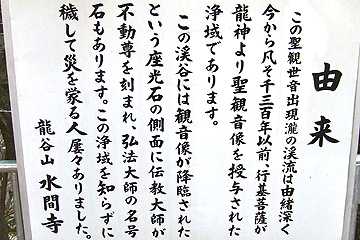 由来
この聖観世音出現瀧の渓流は由緒深く
今から凡そ千三百年以前、行基菩薩が
龍神より聖観音像を授与された
浄域であります。
この渓谷には観音像が降臨された
という座光石の側面に伝教大師が
不動尊を刻まれ、弘法大師の名号
石もあります。この浄域を知らずに
穢して災を蒙る人屡々ありました。
龍谷山 水間寺